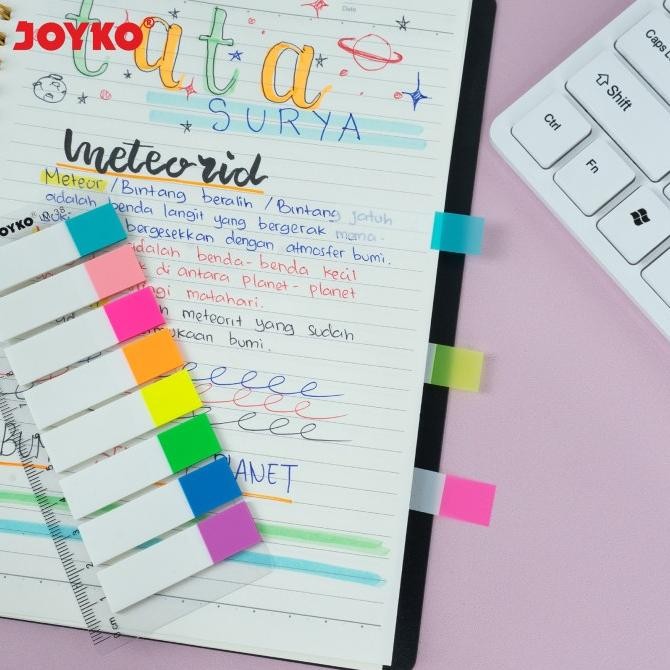 JOYKO®
Date
tata
SURYA
meteorid
Meteor / Bintang beralih / Bintang jatuh
adalah benda langit yang bergerak mema-
bergesekkan dengan atmosfer bumi.
adalah benda-benda kecil
di antara planet-planet
matahari.
meteorit yang sudah
bumi.
PLANET
JOYKO®
Caps
Shift
Ctrl
Fn
cm
1
2